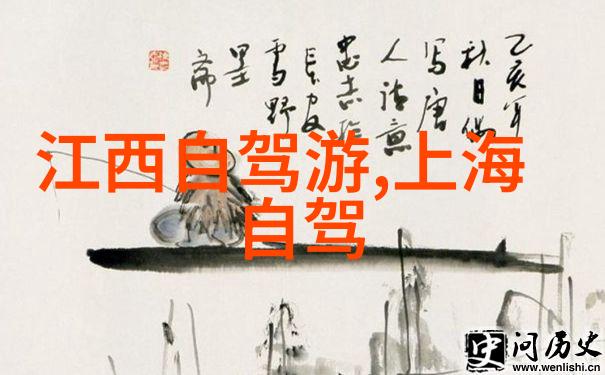 乙亥年
秋日偶
写唐
人诗意
忠志於
长安
雪野
墨
斋
江西自驾游,上海
自驾
史问历史
www.wenlishi.cn